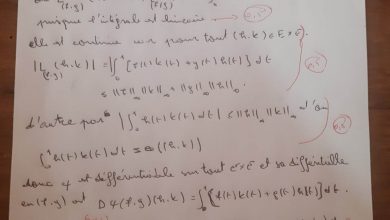 (f,g)
puisque l'intégrale est linéaire 0,5
elle est continue car pour tout (h,k) ∈ E×E,
|L(h,k)| = |∫₀¹ [f(t)k(t) + g(t)h(t)] dt
(f,g)
≤ ‖f‖∞ ‖k‖∞ + ‖g‖∞ ‖h‖∞.
d'autre part |∫₀¹ h(t)k(t) dt| ≤ ‖h‖∞ ‖k‖∞ d'où
∫₀¹ h(t)k(t) dt = o(‖(h,k)‖)
donc φ est différentiable sur tout E×E et sa différentielle
en (f,g) est Dφ(f,g)(h,k) = ∫₀¹ [f(t)k(t) + g(t)h(t)] dt